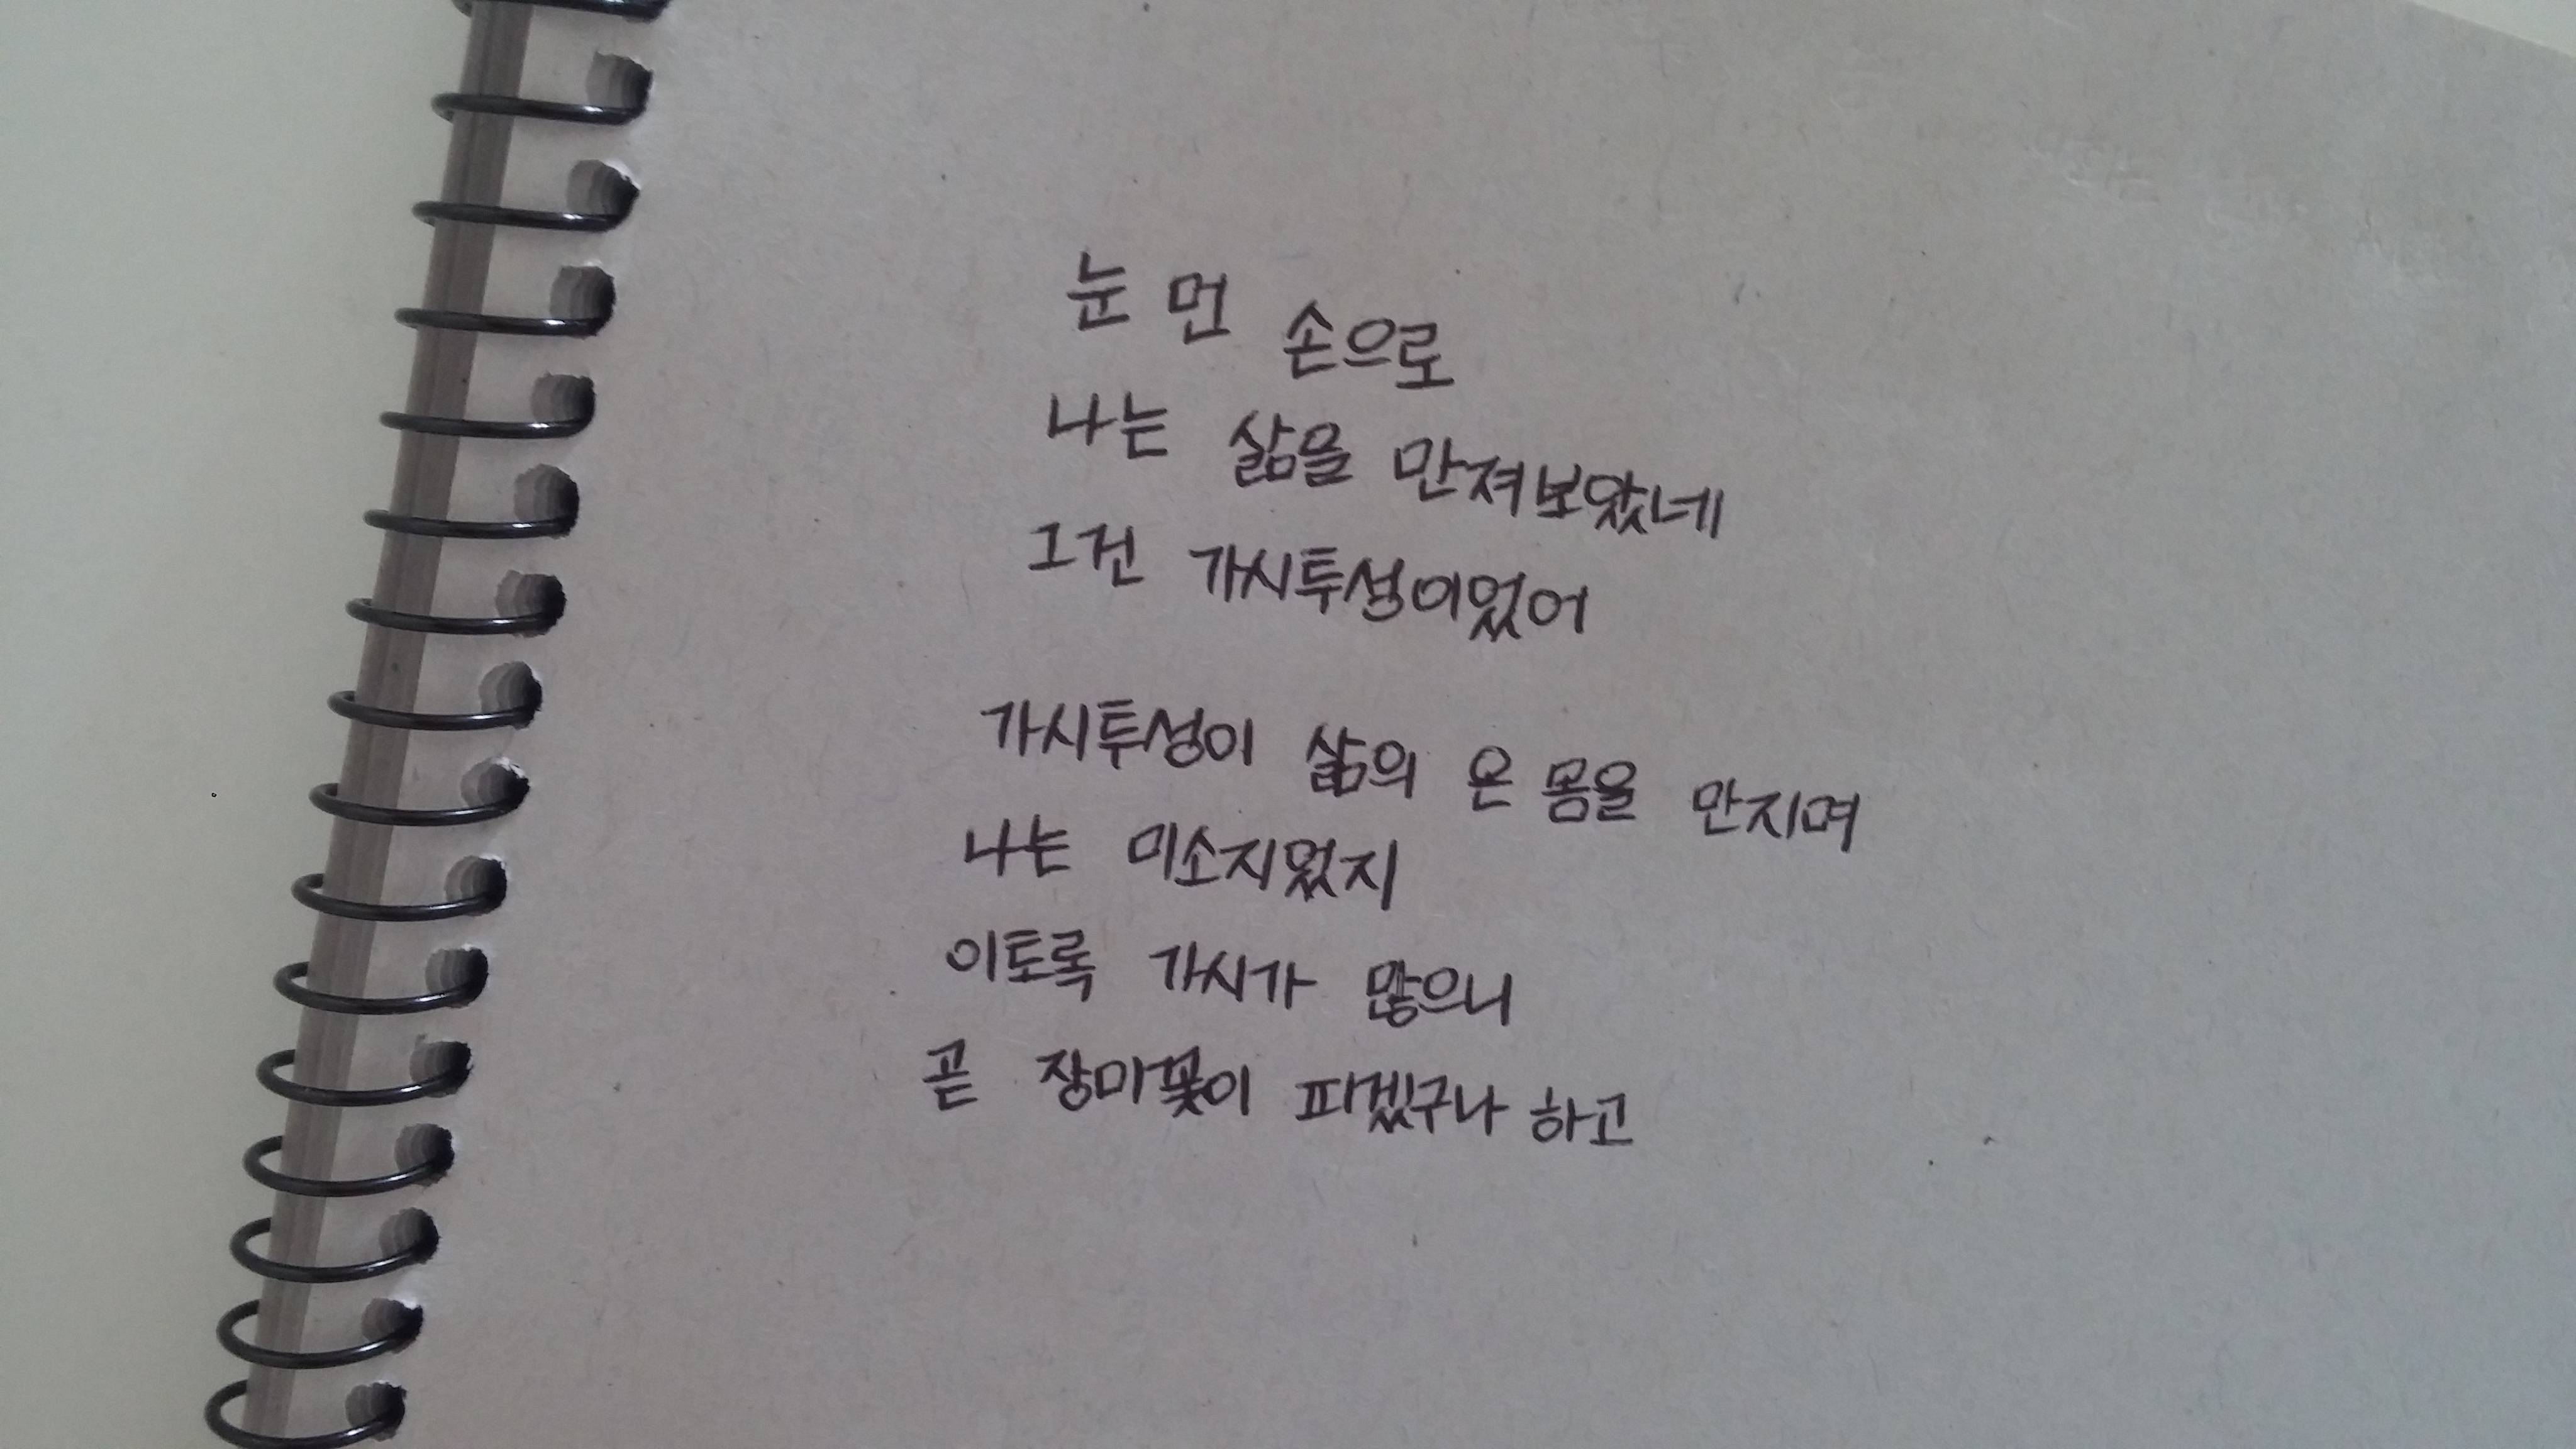 눈 먼 손으로
나는 삶을 만져보았네
그건 가시투성이었어
가시투성이 삶의 온 몸을 만지며
나는 미소지었지
이토록 가시가 많으니
곧 장미꽃이 피겠구나 하고